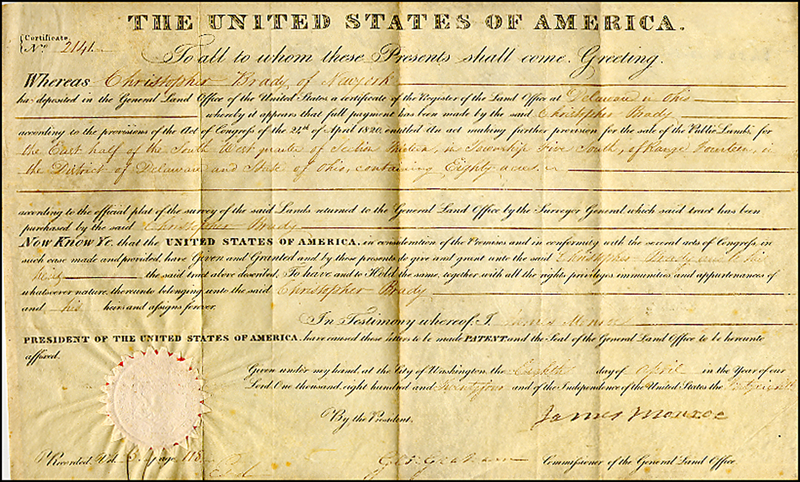 THE UNITED STATES OF AMERICA.
Certificate
No. 2141
To all to whom these Presents shall come, Greeting.
Whereas Christopher Brady, of Newyork
has deposited in the General Land Office of the United States a certificate of the Register of the Land Office at Delaware in Ohio
whereby it appears that full payment has been made by the said Christopher Brady
according to the provisions of the Act of Congress of the 24th of April 1820, entitled An act making further provision for the sale of the Public Lands, for
the East half of the South West quarter of Section Thirteen, in Township Five South, of Range Fourteen, in
the District of Delaware and State of Ohio, containing Eighty acres
according to the official plat of the survey of the said Lands returned to the General Land Office by the Surveyor General, which said tract has been
purchased by the said Christopher Brady
Now Know Ye, that the UNITED STATES OF AMERICA, in consideration of the Premises and in conformity with the several acts of Congress, in
such case made and provided, have Given and Granted and by these presents do give and grant unto the said Christopher Brady and to his
heirs the said tract above described. To have and to Hold the same, together with all the rights privileges immunities and appurtenances of
whatsoever nature, thereunto belonging unto the said Christopher Brady
and his heirs and assigns forever.
In Testimony whereof, I, James Monroe
PRESIDENT OF THE UNITED STATES OF AMERICA, have caused these letters to be made PATENT, and the Seal of the General Land Office to be hereunto
affixed.
Given under my hand, at the City of Washington, the Eighth day of April in the Year of our
Lord One thousand, eight hundred and twenty four and of the Independence of the United States the forty eighth
By the President. James Monroe
Recorded Vol. page 118 Geo: Graham Commissioner of the General Land Office.